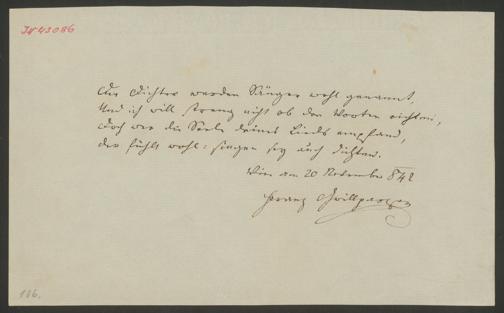 JN 43086
Die Dichter werden Sänger wohl genannt,
Und ich will streng nicht ob den Worten richten,
Doch wer die Seele deines Lieds empfand,
der fühlt wohl: singen sey auch dichten.
Wien am 20 November 842
Franz Grillparzer
186.